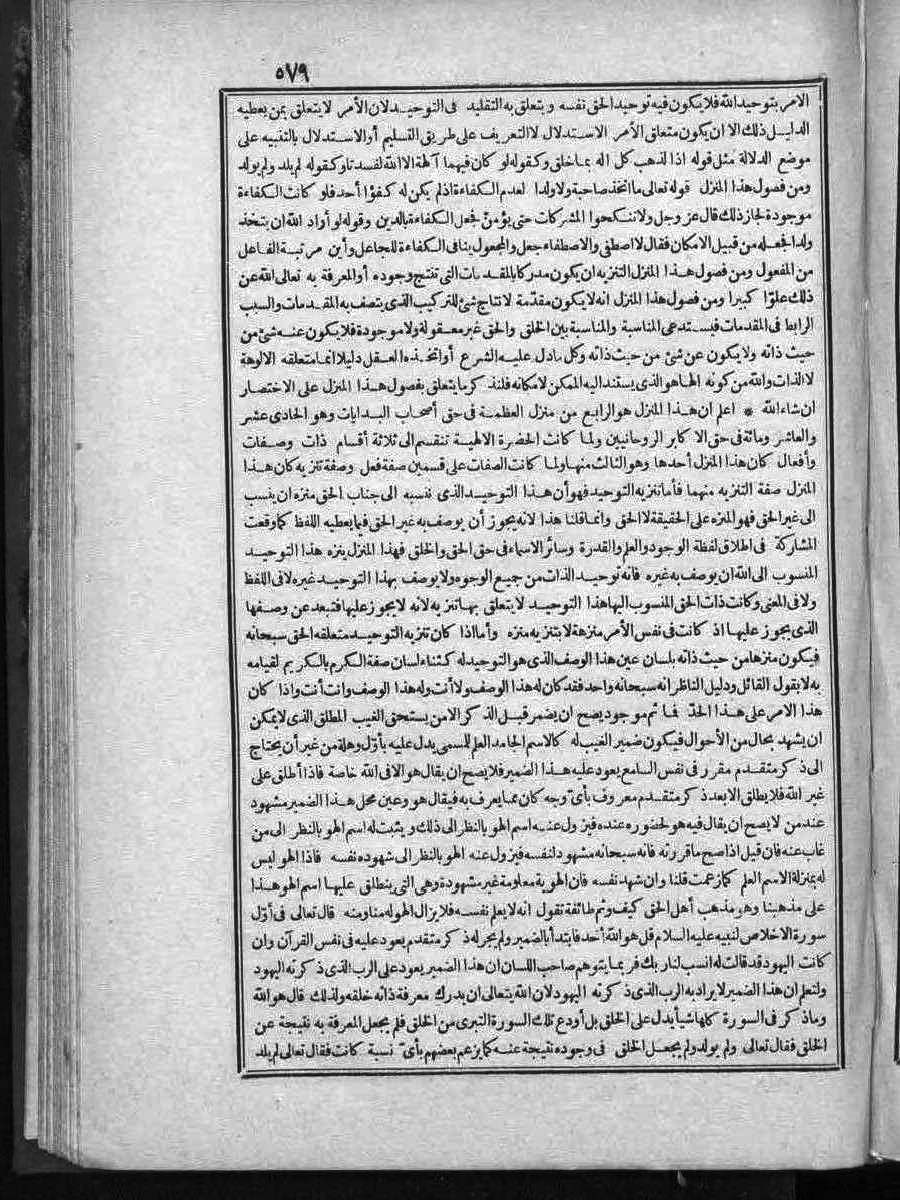 ٥٧٩
الامر بتوحيد الله فلا يكون فيه توحيد الحق نفسه ويتعلق به التقليد فى التوحيد لان الأمر لا يتعلق بمن يعطيه
الدليل ذلك الا ان يكون متعلق الأمر الاستدلال لا التعريف على طريق التسليم أو الاستدلال بالتنبيه على
موضع الدلالة مثل قوله اذا لذهب كل اله بما خلق وكقوله لو كان فيهما آلهة الا الله لفسدتا وكقوله لم يلد ولم يولد
ومن فصول هذا المنزل قوله تعالى ما اتخذ صاحبة ولا ولدا لعدم الكفاءة اذ لم يكن له كفؤا أحد فلو كانت الكفاءة
موجودة لجاز ذلك قال عز وجل ولا تنكحوا المشركات حتى يؤمنّ فجعل الكفاءة بالدين وقوله لو أراد الله ان يتخذ
ولدا لجعله من قبيل الامكان فقال لاصطفى والاصطفاء جعل والمجعول ينافى الكفاءة للجاعل وأين مرتبة الفاعل
من المفعول ومن فصول هذا المنزل التنزيه ان يكون مدركا بالمقدمات التى تنتج وجوده أو المعرفة به تعالى الله عن
ذلك علوّا كبيرا ومن فصول هذا المنزل انه لا يكون مقدّمة لانتاج شئ للتركيب الذى يتصف به المقدمات والسبب
الرابط فى المقدمات فيستدعى المناسبة والمناسبة بين الخلق والحق غير معقولة ولا موجودة فلا يكون عنه شئ من
حيث ذاته ولا يكون عن شئ من حيث ذاته وكل ما دل عليه الشرع أو اتخذه العقل دليلا انما متعلقه الالوهة
لا الذات والله من كونه الها هو الذى يستند اليه الممكن لامكانه فلنذكر ما يتعلق بفصول هذا المنزل على الاختصار
ان شاء الله * اعلم ان هذا المنزل هو الرابع من منزل العظمة فى حق أصحاب البدايات وهو الحادى عشر
والعاشر ومائة فى حق الاكابر الروحانيين ولما كانت الحضرة الالهية تنقسم الى ثلاثة أقسام ذات وصفات
وأفعال كان هذا المنزل أحدها وهو الثالث منها ولما كانت الصفات على قسمين صفة فعل وصفة تنزيه كان هذا
المنزل صفة التنزيه منهما فأما تنزيه التوحيد فهو أن هذا التوحيد الذى نسبه الى جناب الحق منزه ان ينسب
الى غير الحق فهو المنزه على الحقيقة لا الحق وانما قلنا هذا لانه يجوز أن يوصف به غير الحق فيما يعطيه اللفظ كما وقعت
المشاركة فى اطلاق لفظة الوجود والعلم والقدرة وسائر الاسماء فى حق الحق والخلق فهذا المنزل ينزه هذا التوحيد
المنسوب الى الله ان يوصف به غيره فانه توحيد الذات من جميع الوجوه ولا يوصف بهذا التوحيد غيره لا فى اللفظ
ولا فى المعنى وكانت ذات الحق المنسوب اليها هذا التوحيد لا يتعلق بها تنزيه لانه لا يجوز عليها فتبعد عن وصفها
الذى يجوز عليها اذ كانت فى نفس الأمر منزهة لا بتنزيه منزه وأما اذا كان تنزيه التوحيد متعلقه الحق سبحانه
فيكون منزها من حيث ذاته بلسان عين هذا الوصف الذى هو التوحيد له كثناء لسان صفة الكرم بالكريم لقيامه
به لا بقول القائل ودليل الناظر انه سبحانه واحد فقد كان له هذا الوصف ولا أنت وله هذا الوصف وانت أنت واذا كان
هذا الامر على هذا الحدّ فما ثم موجود يصح ان يضمر قبل الذكر الا من يستحق الغيب المطلق الذى لا يمكن
ان يشهد بحال من الأحوال فيكون ضمير الغيب له كالاسم الجامد العلم للمسمى يدل عليه بأوّل وهلة من غير أن يحتاج
الى ذكر متقدم مقرر فى نفس السامع يعود عليه هذا الضمير فلا يصح ان يقال هو الا فى الله خاصة فاذا أطلق على
غير الله فلا يطلق الا بعد ذكر متقدم معروف بأىّ وجه كان مما يعرف به فيقال هو وعين محل هذا الضمير مشهود
عند من لا يصح ان يقال فيه هو لحضوره عنده فيزول عنه اسم الهو بالنظر الى ذلك ويثبت له اسم الهو بالنظر الى من
غاب عنه فان قيل اذا صح ما قررته فانه سبحانه مشهود لنفسه فيزول عنه الهو بالنظر الى شهوده نفسه فاذا الهو ليس
له بمنزلة الاسم العلم كما زعمت قلنا وان شهد نفسه فان الهوية معلومة غير مشهودة وهى التى ينطلق عليها اسم الهو هذا
على مذهبنا وهو مذهب أهل الحق كيف وثم طائفة تقول انه لا يعلم نفسه فلا يزال الهو له منا ومنه قال تعالى فى أوّل
سورة الاخلاص لنبيه عليه السلام قل هو الله أحد فابتدأ بالضمير ولم يجر له ذكر متقدم يعود عليه فى نفس القرآن وان
كانت اليهود قد قالت له انسب لنا ربك فربما يتوهم صاحب اللسان ان هذا الضمير يعود على الرب الذى ذكرته اليهود
ولتعلم ان هذا الضمير لا يراد به الرب الذى ذكرته اليهود لان الله يتعالى ان يدرك معرفة ذاته خلقه ولذلك قال هو الله
وما ذكر فى السورة كلها شيأ يدل على الخلق بل أودع تلك السورة التبرى من الخلق فلم يجعل المعرفة به نتيجة عن
الخلق فقال تعالى ولم يولد ولم يجعل الخلق فى وجوده نتيجة عنه كما يزعم بعضهم بأىّ نسبة كانت فقال تعالى لم يلد